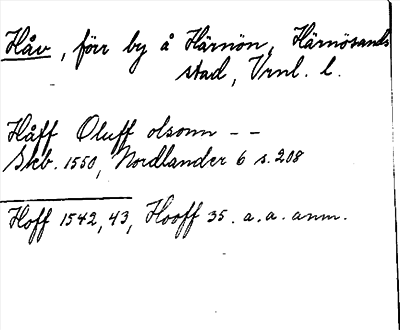 Håv, förr by å Härnön, Härnösands
stad, Vrnl. l.
Håff Oluff olsonn - -
Skb. 1550, Nordlander 6 s. 208
Hoff 1542, 43, Hooff 35. a. a. anm.